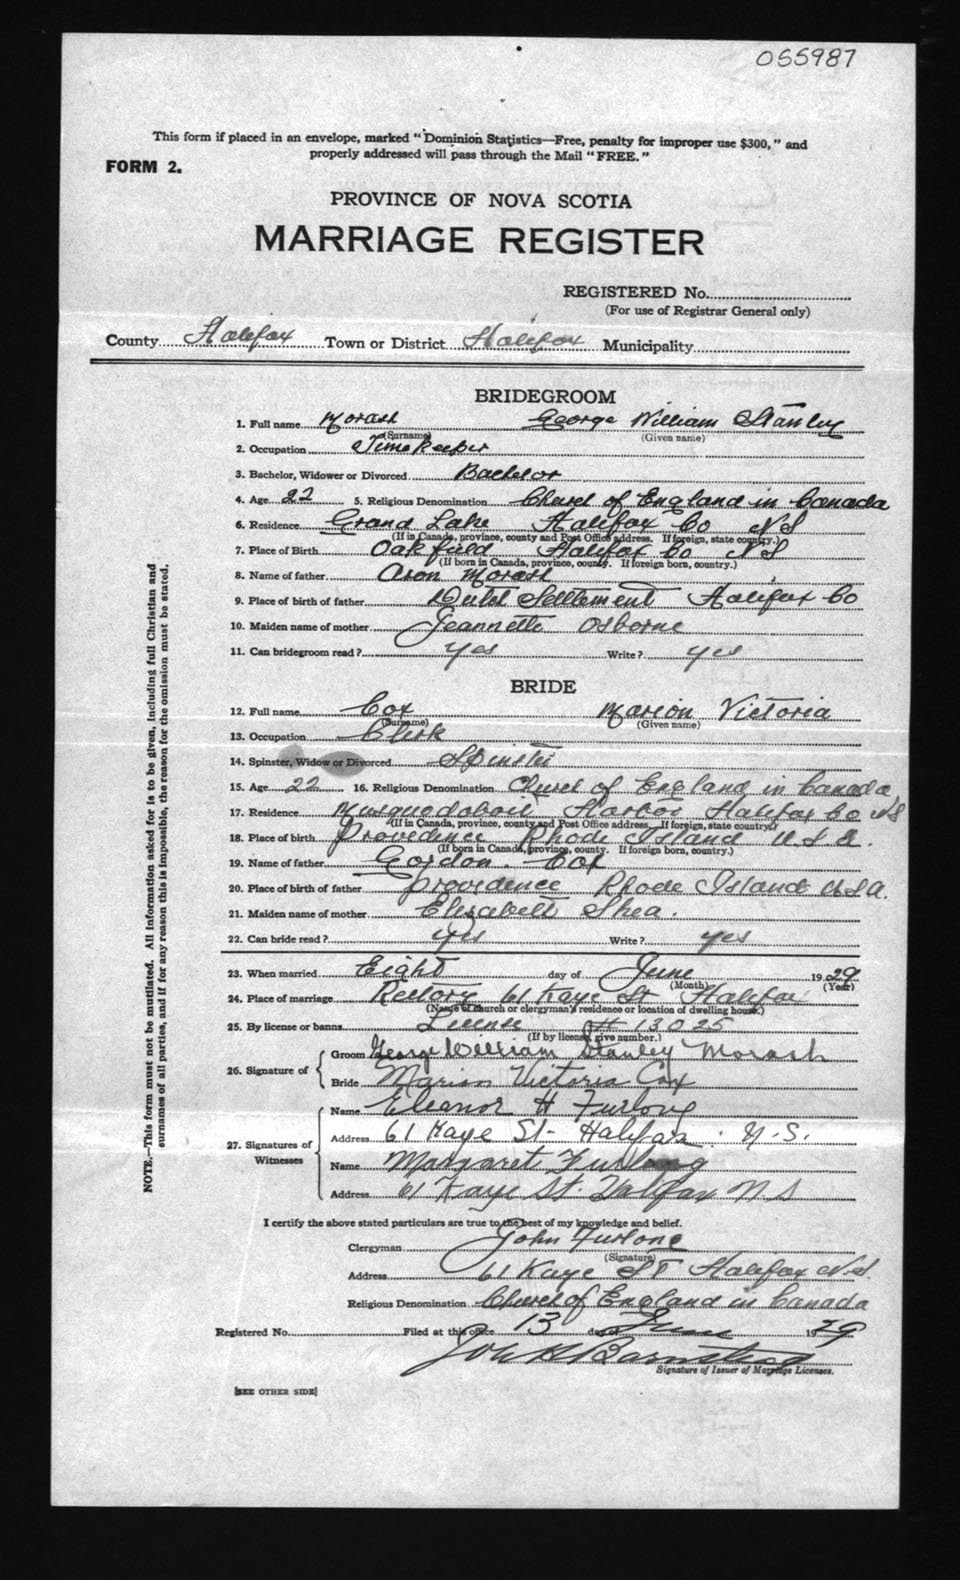 055987
This form if placed in an envelope, marked "Dominion Statistics—Free, penalty for improper use $300," and
properly addressed will pass through the Mail "FREE."
FORM 2.
PROVINCE OF NOVA SCOTIA
MARRIAGE REGISTER
REGISTERED No.
(For use of Registrar General only)
County Halifax Town or District Halifax Municipality
BRIDEGROOM
1. Full name Morash George William Stanley
(Surname) (Given name)
2. Occupation Timekeeper
3. Bachelor, Widower or Divorced Bachelor
4. Age 22 5. Religious Denomination Church of England in Canada
6. Residence Grand Lake Halifax Co NS
(If in Canada, province, county and Post Office address. If foreign, state country.)
7. Place of Birth Oakfield Halifax Co NS
(If born in Canada, province, county. If foreign born, country.)
8. Name of father Aron Morash
9. Place of birth of father Settlement Halifax Co
10. Maiden name of mother Jeannette Osborne
11. Can bridegroom read? yes Write? yes
BRIDE
12. Full name Cox Marion Victoria
(Surname) (Given name)
13. Occupation Clerk
14. Spinster, Widow or Divorced Spinster
15. Age 22 16. Religious Denomination Church of England in Canada
17. Residence Musquodoboit Harbor Halifax Co NS
(If in Canada, province, county and Post Office address. If foreign, state country)
18. Place of birth Providence Rhode Island U.S.A.
(If born in Canada, province, county. If foreign born, country.)
19. Name of father Gordon. Cox
20. Place of birth of father Providence Rhode Island USA.
21. Maiden name of mother Elizabeth Shea.
22. Can bride read? yes Write? yes
23. When married Eight day of June 1929
(Month) (Year)
24. Place of marriage Rectory 61 Kaye St Halifax
(Name of church or clergyman's residence or location of dwelling house.)
25. By license or banns License # 13025
(If by license, give number.)
26. Signature of
Groom George William Stanley Morash
Bride Marion Victoria Cox
27. Signatures of Witnesses
Name Eleanor H Furlong
Address 61 Kaye St- Halifax. N.S.
Name Margaret Furlong
Address 61 Kaye St. Halifax N S
I certify the above stated particulars are true to the best of my knowledge and belief.
Clergyman John Furlong
(Signature)
Address 61 Kaye St Halifax N.S.
Religious Denomination Church of England in Canada
Registered No. Filed at this office 13 day of June 1929
Signature of Issuer of Marriage Licenses.
[SEE OTHER SIDE]
NOTE.—This form must not be mutilated. All information asked for is to be given, including full Christian and
surnames of all parties, and if for any reason this is impossible, the reason for the omission must be stated.